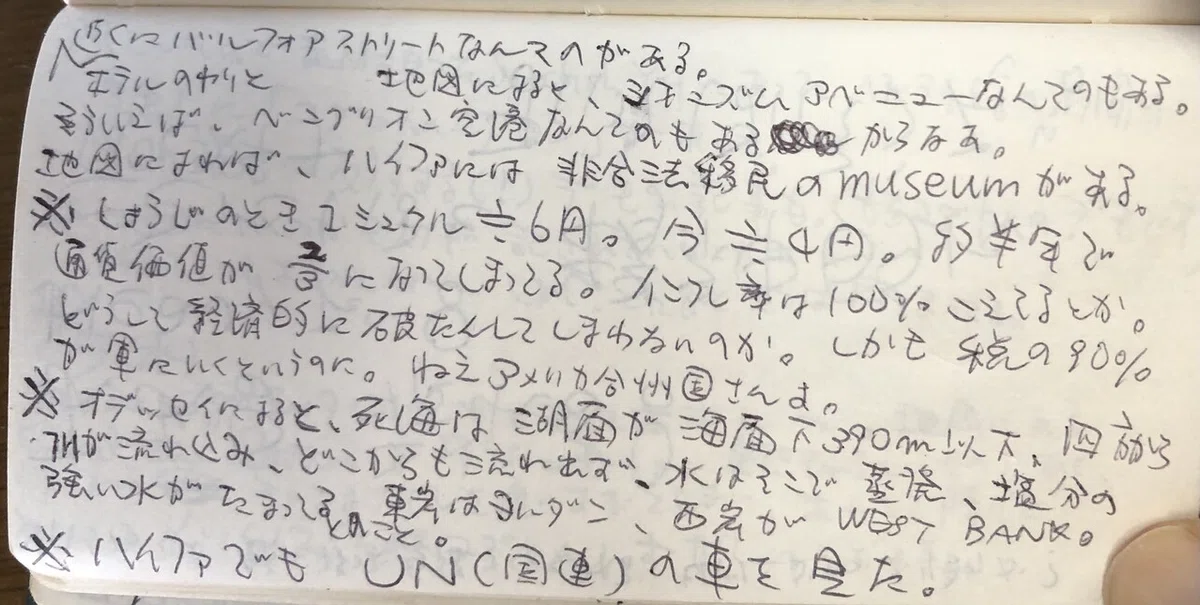 近くにバルフォアストリートなんてのがある。
ホテルのわりと 地図によると、シオニズムアベニューなんてのもある。
そういえば、ベングリオン空港なんてのもあるからなあ。
地図によれば、ハイファには非合法移民のmuseumがある。
※しょうじのとき1シュケル≒6円。今≒4円。約半年で
通貨価値が2/3になってしまってる。インフレ率は100%こえてるとか。
どうして経済的に破たんしてしまわないのか。しかも税の90%
が軍にいくというのに。ねえアメリカ合州国さんよ。
※オデッセイによると、死海は湖面が海面下390m以下、四方から
川が流れ込み、どこからも流れ出ず、水はそこで蒸発、塩分の
強い水がたまってるとのこと。東岸はヨルダン、西岸がWEST BANK。
※ハイファでもUN(国連)の車を見た。